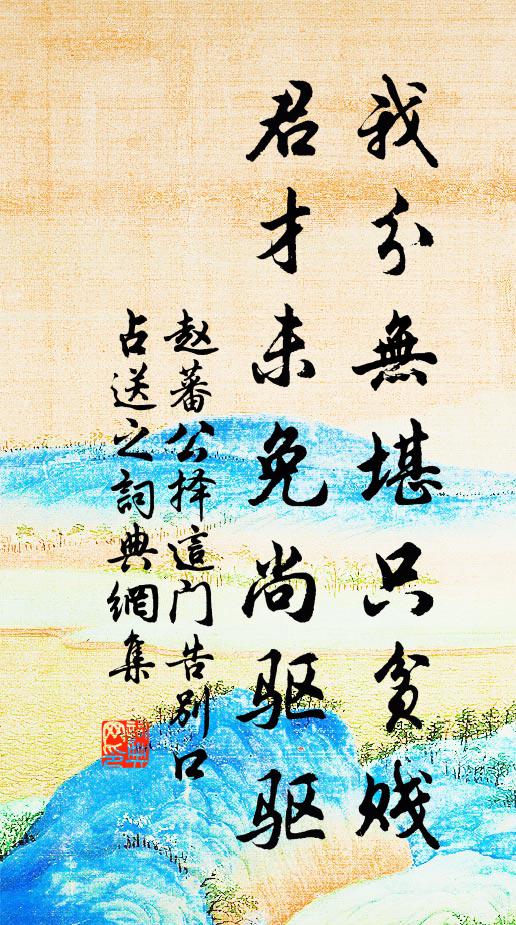 我分無堪只貧賤
君才未免尚驱驱
赵蕃公择這门告别口
占送之詞典網集